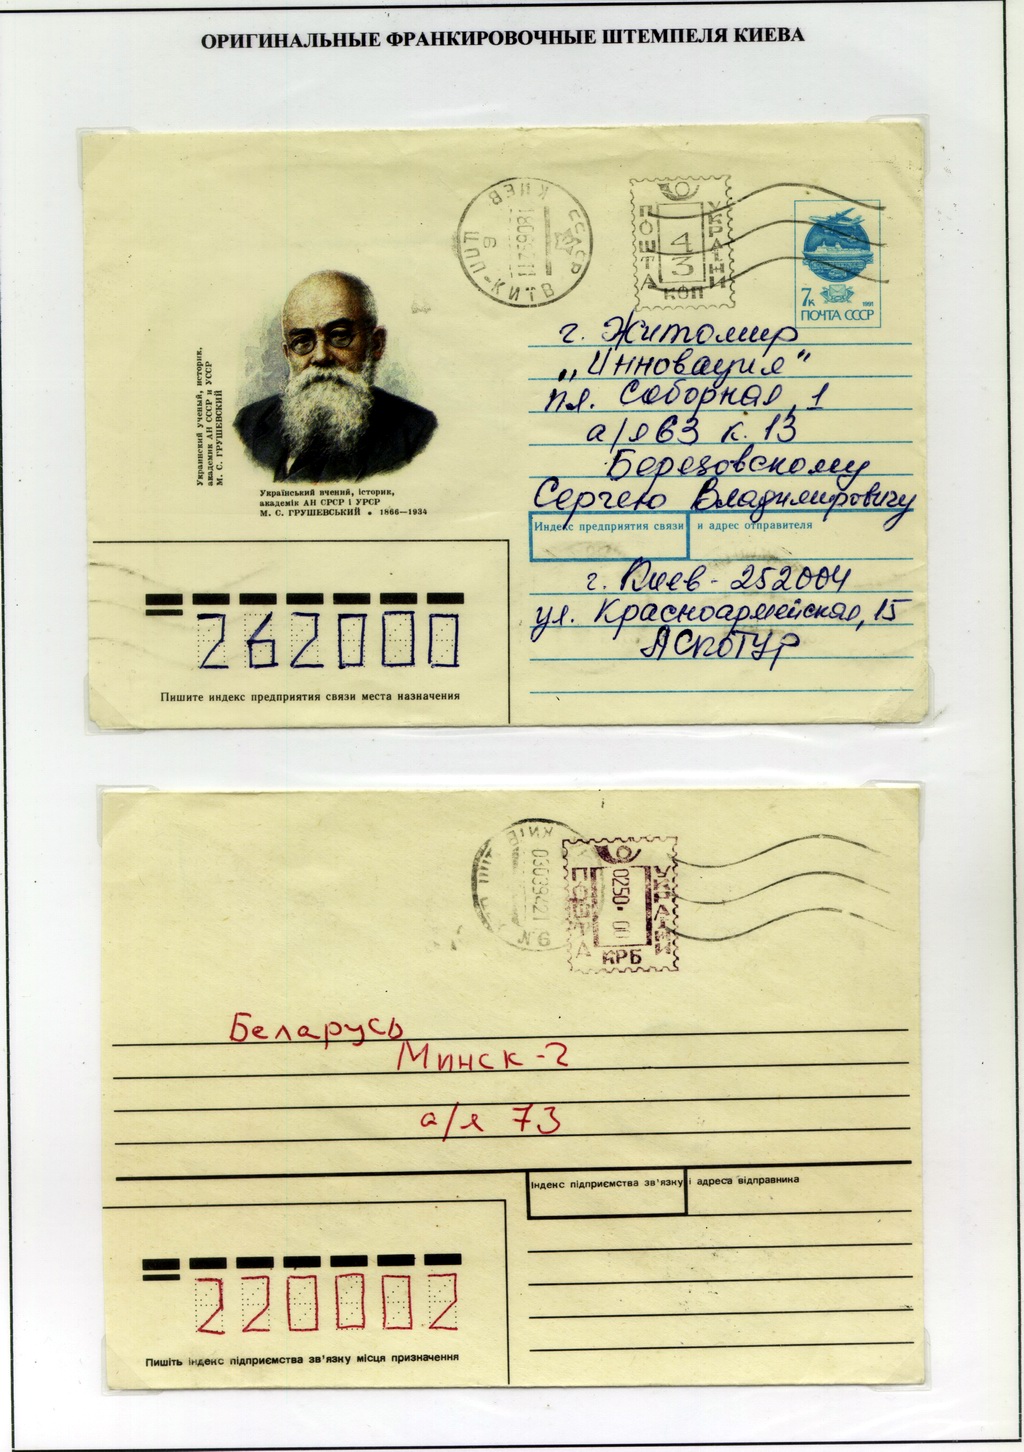 ОРИГИНАЛЬНЫЕ ФРАНКИРОВОЧНЫЕ ШТЕМПЕЛЯ КИЕВА
КИЕВ
СССР
ПОШТА
43
КОП
УКРАЇНИ
7к
1991
ПОЧТА СССР
Украинский ученый, историк,
академик АН СССР и УССР
М. С. ГРУШЕВСКИЙ
Український вчений, історик,
академік АН СРСР і УРСР
М. С. ГРУШЕВСЬКИЙ • 1866—1934
г. Житомир
„Инновация"
пл. Соборная, 1
а/я 63 к. 13
Березовскому
Сергею Владимировичу
Индекс предприятия связи и адрес отправителя
г. Киев - 252004
ул. Красноармейская, 15
АСКОТУР
262000
Пишите индекс предприятия связи места назначения
КИЇВ
ПОШТА
0250
00
КРБ
УКРАЇНИ
Беларусь
Минск-2
а/я 73
Індекс підприємства зв'язку і адреса відправника
220002
Пишіть індекс підприємства зв'язку місця призначення